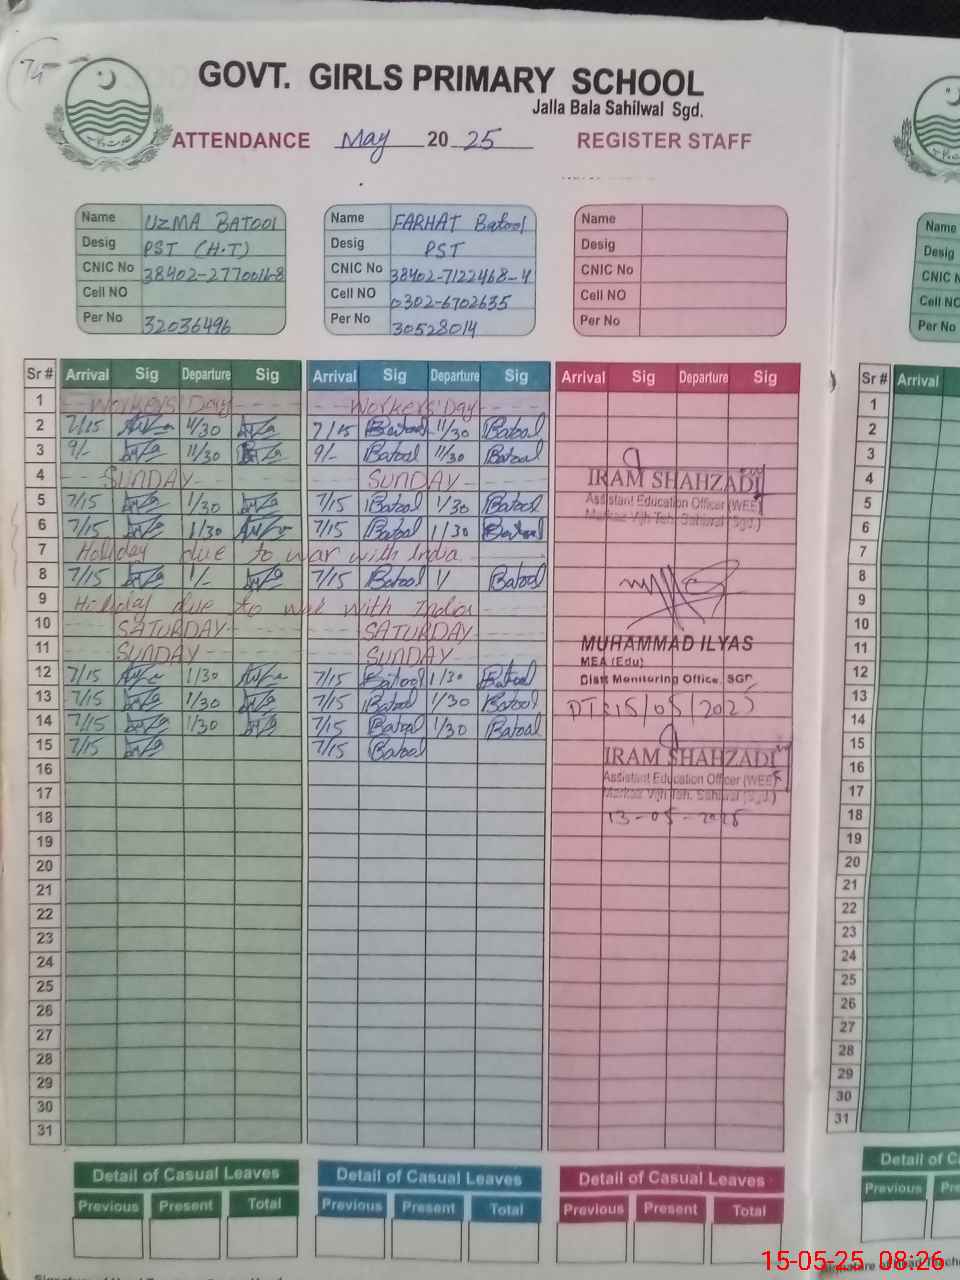 74
GOVT. GIRLS PRIMARY SCHOOL
Jalla Bala Sahilwal Sgd.
ATTENDANCE May 20 25 REGISTER STAFF
Name UZMA BATOOL Name FARHAT Batool Name
Desig PST (H.T) Desig PST Desig
CNIC No 38402-2770016-8 CNIC No 38402-7122468-4 CNIC No
Cell NO Cell NO 0302-6702635 Cell NO
Per No 32036496 Per No 30528014 Per No
Sr # Arrival Sig Departure Sig Arrival Sig Departure Sig Arrival Sig Departure Sig
1 Workers' Day Workers' Day
2 7/15 11/30 7/15 Batool 11/30 Batool
3 9/- 11/30 9/- Batool 11/30 Batool
4 SUNDAY SUNDAY
IRAM SHAHZADI
5 7/15 1/30 7/15 Batool 1/30 Batool
Assistant Education Officer (WEE)
Markaz Vijh Teh. Sahiwal (Sgd.)
6 7/15 1/30 7/15 Batool 1/30 Batool
7 Holiday due to war with India
8 7/15 1/- 7/15 Batool 1/ Batool
9 Holiday due to war with India
10 SATURDAY SATURDAY
11 SUNDAY SUNDAY
MUHAMMAD ILYAS
MEA (Edu)
12 7/15 1/30 7/15 Batool 1/30 Batool
Distt Monitoring Office, SGD
13 7/15 1/30 7/15 Batool 1/30 Batool
DT: 15/05/2025
14 7/15 1/30 7/15 Batool 1/30 Batool
15 7/15 7/15 Batool
IRAM SHAHZADI
16
Assistant Education Officer (WEE)
17
Markaz Vijh Teh. Sahiwal (Sgd.)
18
13-05-2025
19
20
21
22
23
24
25
26
27
28
29
30
31
Detail of Casual Leaves Detail of Casual Leaves Detail of Casual Leaves
Previous Present Total Previous Present Total Previous Present Total
Name
Desig
CNIC N
Cell NO
Per No
Sr # Arrival
1
2
3
4
5
6
7
8
9
10
11
12
13
14
15
16
17
18
19
20
21
22
23
24
25
26
27
28
29
30
31
Detail of C
Previous Pre
15-05-25 08:26